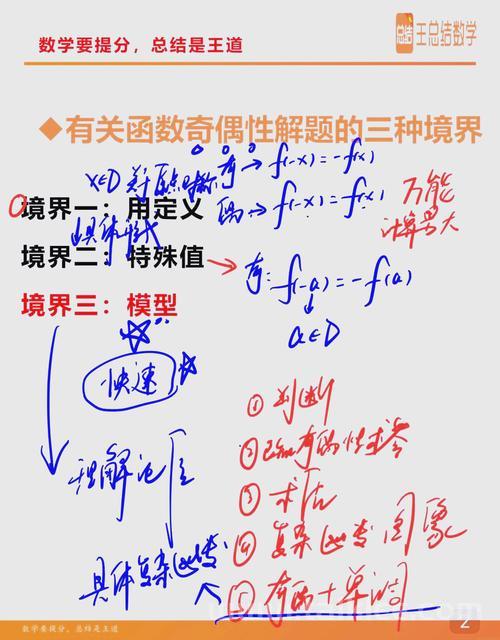 数学要提分，总结是王道
总结 王总结数学
◆有关函数奇偶性解题的三种境界
x∈D 关于原点对称 奇→f(-x)=-f(x)
境界一：用定义 偶→f(-x)=f(x) 万能
具体形式 计算量大
境界二：特殊值 → 奇:f(-a)=-f(a)
a∈D
境界三：模型
快速
① 判断
②已知奇偶性求参
理解记忆
③ 求值
④ 复杂函数图象
具体复杂函数
⑤ 奇偶+单调
数学要提分，总结是王道
2